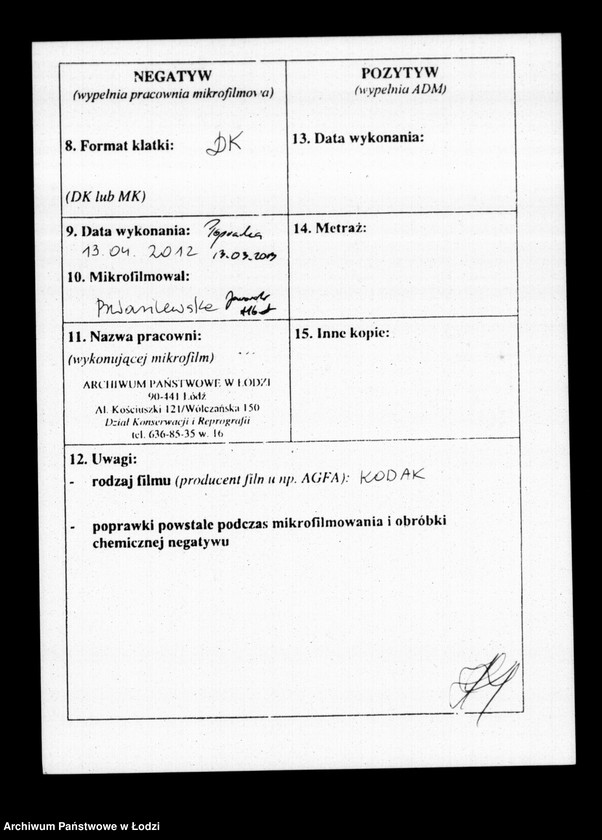 NEGATYW
(wypełnia pracownia mikrofilmowa)
POZYTYW
(wypełnia ADM)
8. Format klatki: DK
(DK lub MK)
13. Data wykonania:
9. Data wykonania: Poprawka
13.04.2012 13.03.2013
14. Metraż:
10. Mikrofilmował:
11. Nazwa pracowni:
(wykonującej mikrofilm)
ARCHIWUM PAŃSTWOWE W ŁODZI
90-441 Łódź
Al. Kościuszki 121/Wólczańska 150
Dział Konserwacji i Reprografii
tel. 636-85-35 w. 16
15. Inne kopie:
12. Uwagi:
- rodzaj filmu (producent filmu np. AGFA): KODAK
- poprawki powstałe podczas mikrofilmowania i obróbki
chemicznej negatywu
Archiwum Państwowe w Łodzi